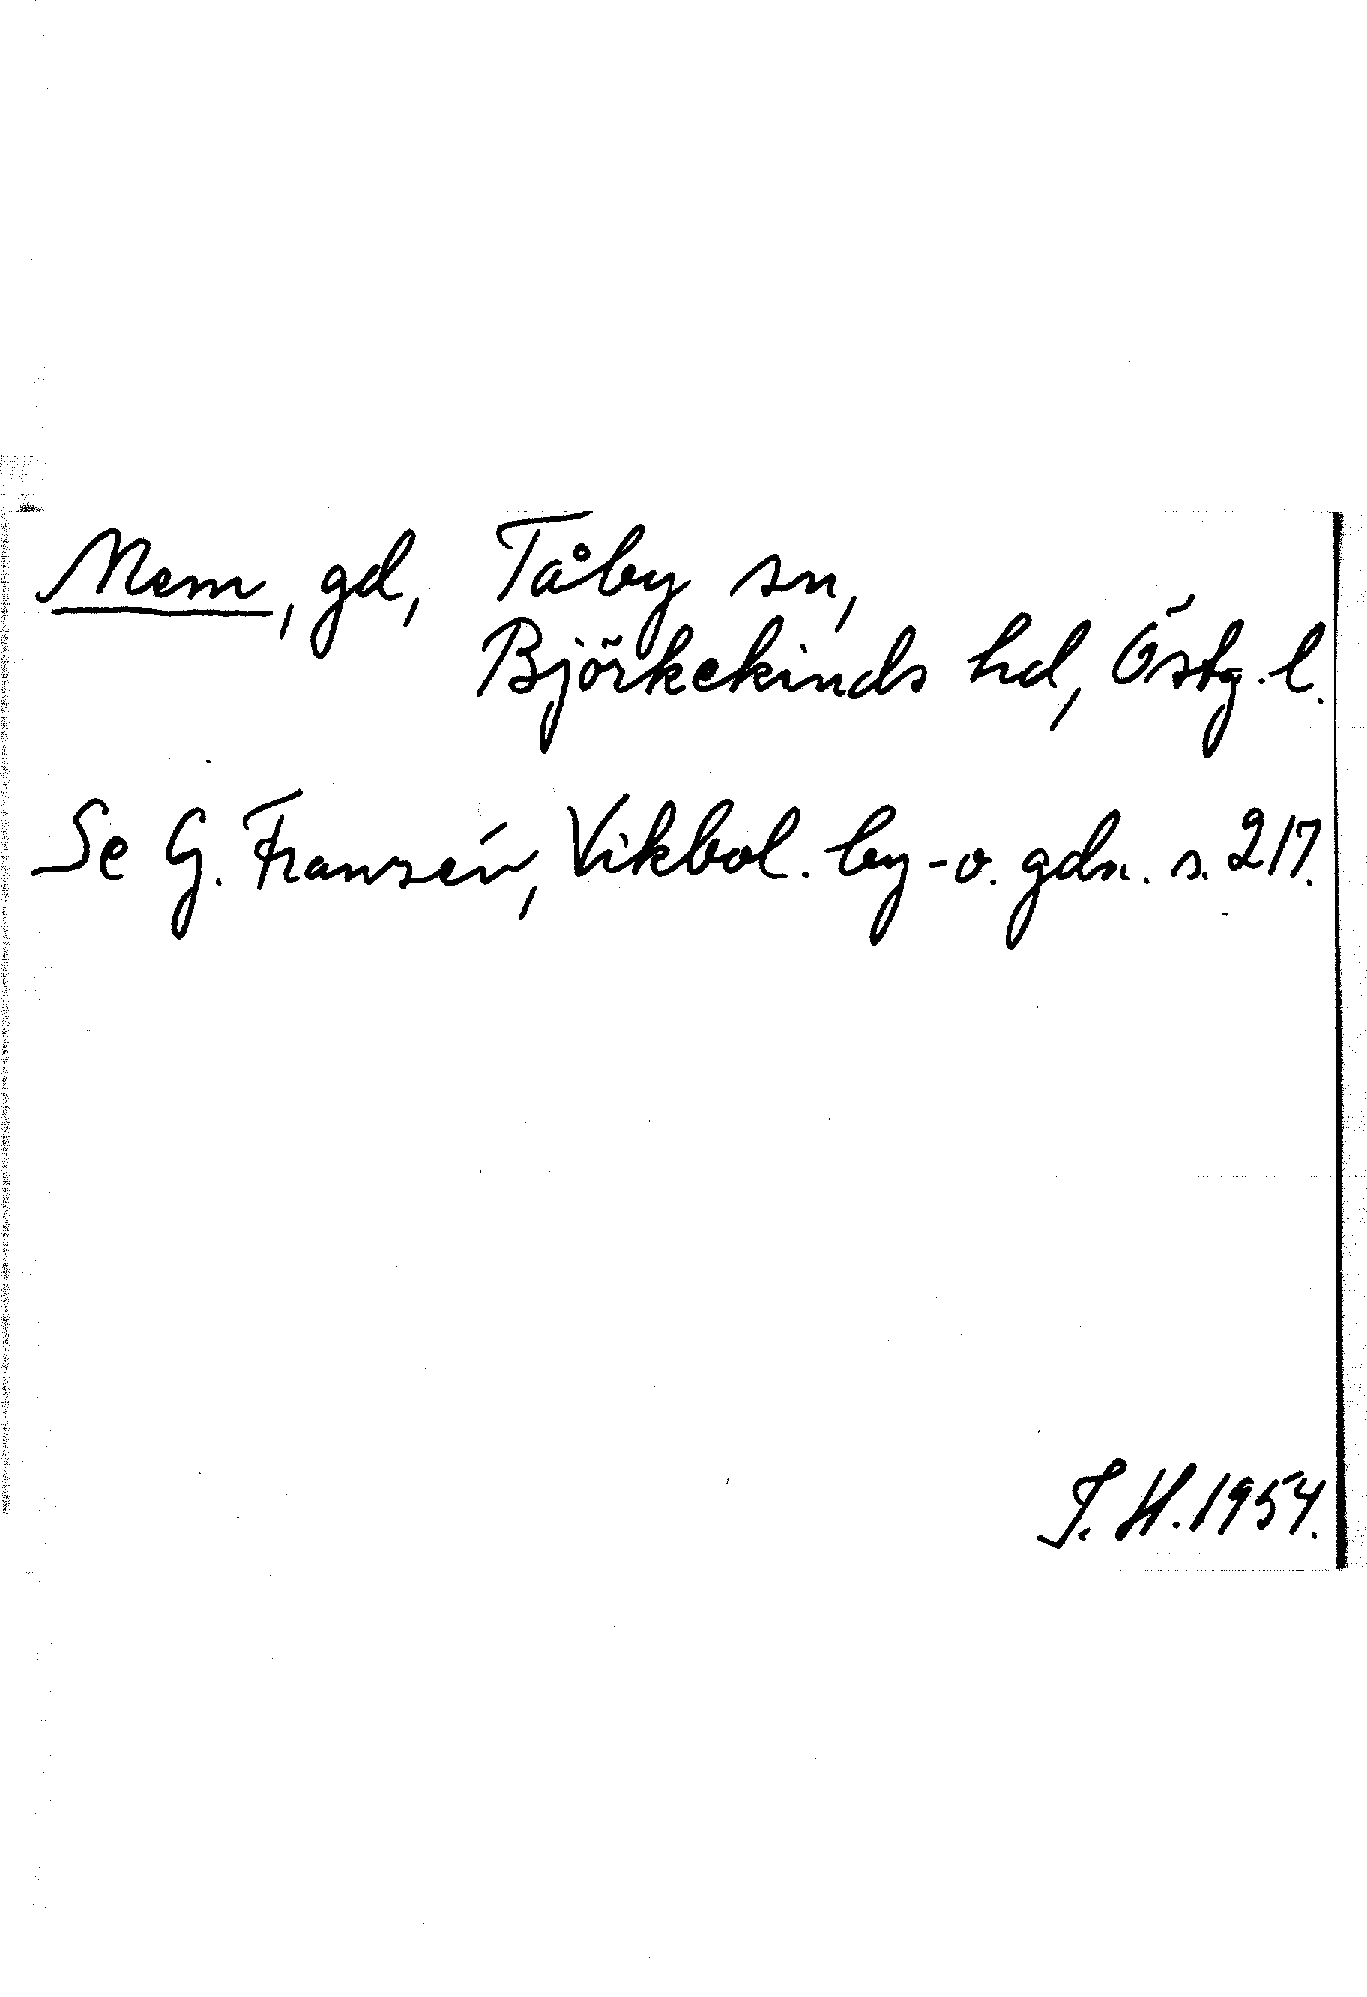 Mem, gd, Tåby sn,
Björkekinds hd, Östg. l.
Se G. Franzén, Vikbol. by- o. gdn. s. 217.
T. H. 1954.